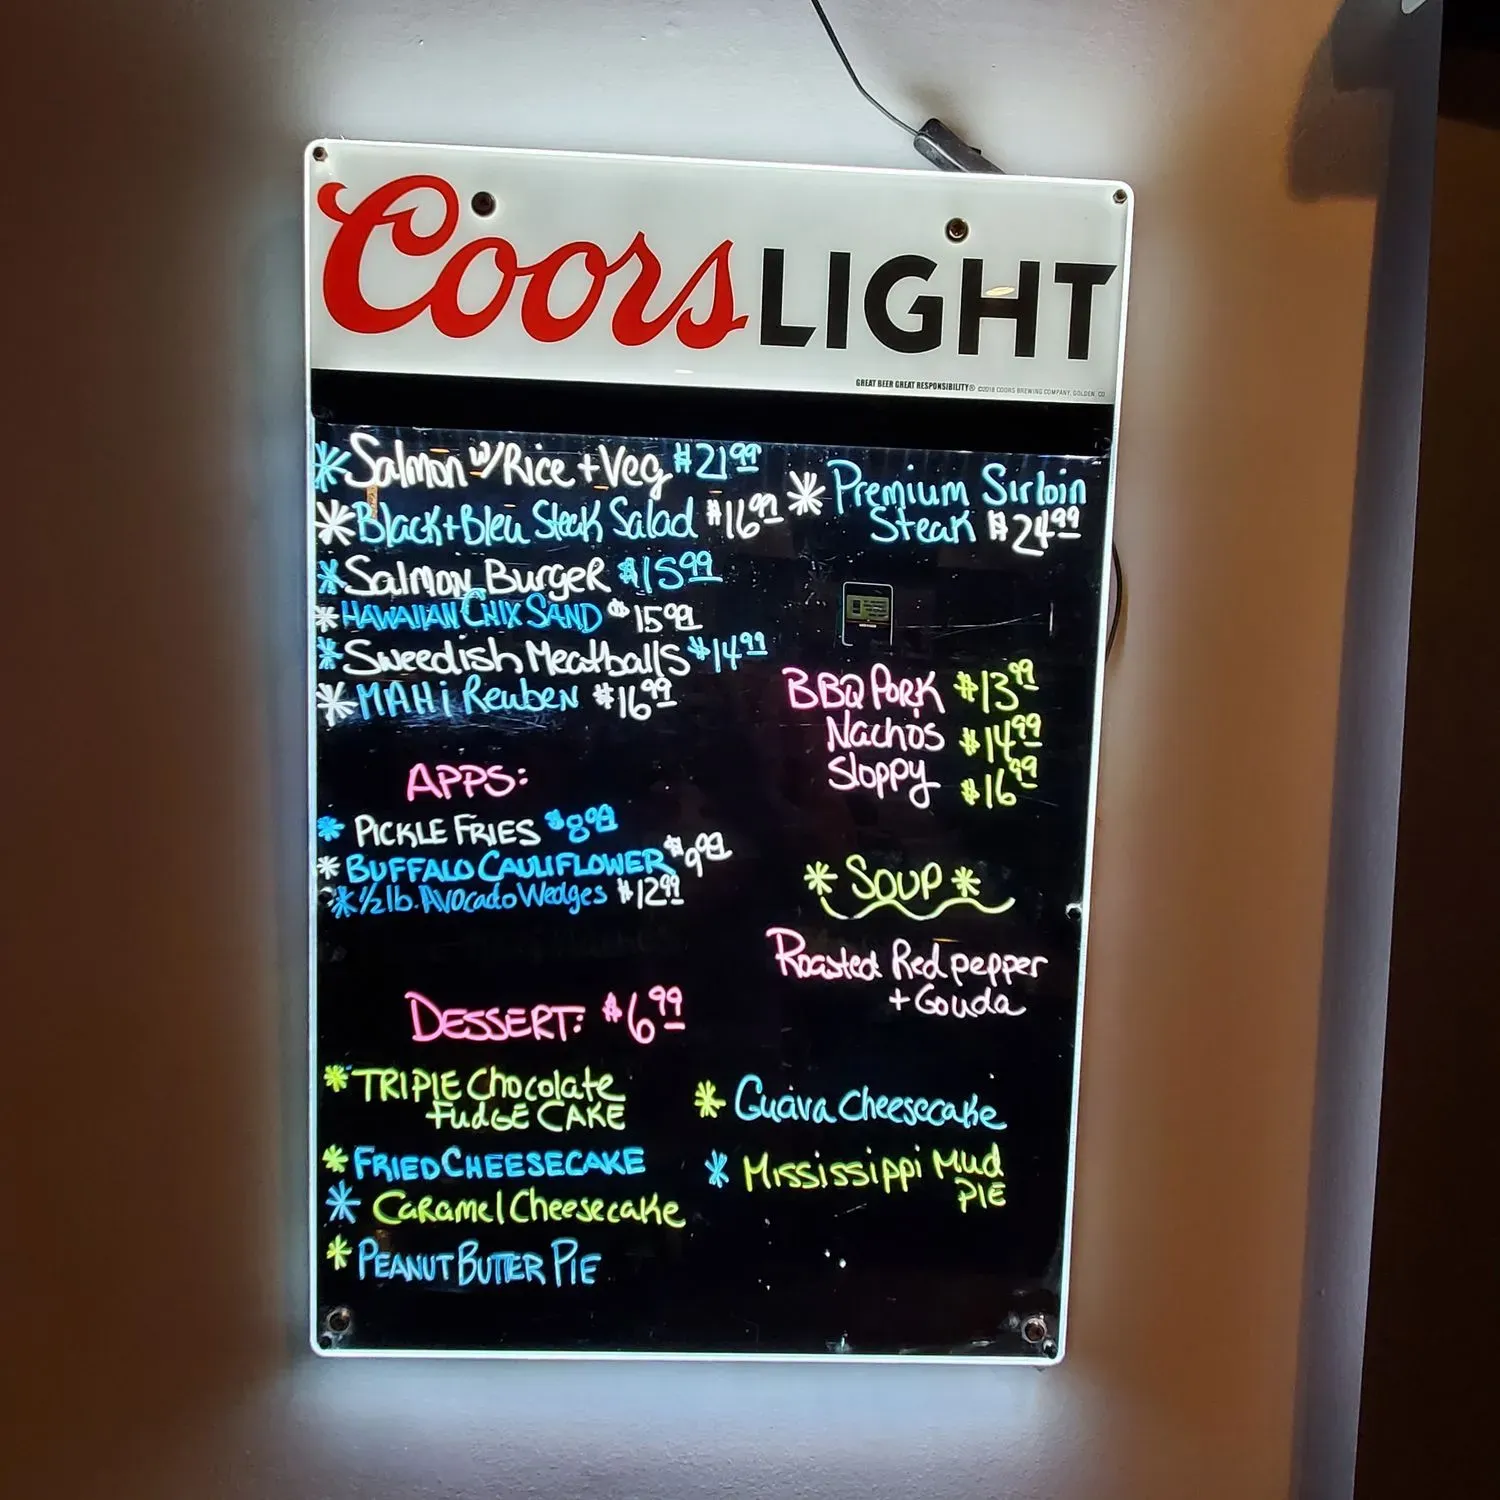 Coors LIGHT
GREAT BEER GREAT RESPONSIBILITY® ©2018 COORS BREWING COMPANY, GOLDEN, CO
* Salmon w/ Rice + Veg $21.99
* Black + Bleu Steak Salad $16.99
* Salmon Burger $15.99
* HAWAIIAN CHIX SAND $15.99
* Swedish Meatballs $14.99
* MAHi Reuben $16.99
* Premium Sirloin
Steak $24.99
BBQ PORK $13.99
Nachos $14.99
Sloppy $16.99
APPS:
* PICKLE FRIES $8.99
* BUFFALO CAULIFLOWER $9.99
* 1/2 lb. Avocado Wedges $12.99
* SOUP *
Roasted Red pepper
+ Gouda
DESSERT: $6.99
* TRIPlE Chocolate
FUdGE CAKE
* FRIED CHEESECAKE
* CaRamel Cheesecake
* PEANUT BUTTER PIE
* Guava Cheesecake
* Mississippi Mud
PIE